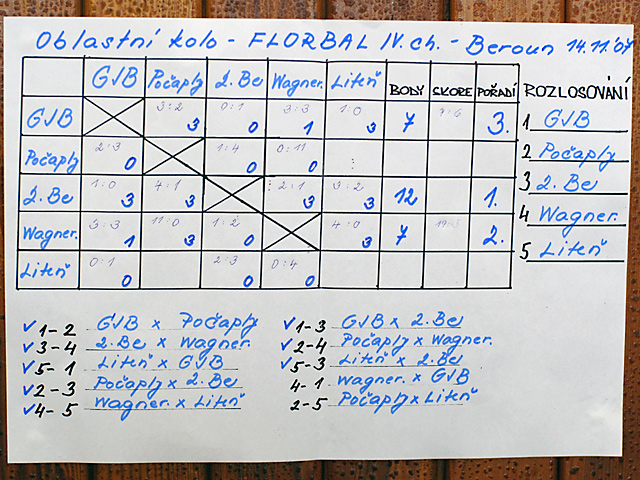 Oblastní kolo - FLORBAL IV. ch. - Beroun 14.11.'07
GJB Počaply 2.Be Wagner. Liteň BODY SKORE POŘADÍ
GJB 3:2 3 0:1 0 3:3 1 1:0 3 7 3.
Počaply 2:3 0 1:4 0 0:11 0 :
2.Be 1:0 3 4:1 3 2:1 3 3:2 3 12 1.
Wagner. 3:3 1 11:0 3 1:2 0 4:0 3 7 2.
Liteň 0:1 0 2:3 0 0:4 0
ROZLOSOVÁNÍ
1 GJB
2 Počaply
3 2.Be
4 Wagner.
5 Liteň
✓ 1-2 GJB x Počaply
✓ 3-4 2.Be x Wagner.
✓ 5-1 Liteň x GJB
✓ 2-3 Počaply x 2.Be
✓ 4-5 Wagner. x Liteň
✓ 1-3 GJB x 2.Be
✓ 2-4 Počaply x Wagner.
✓ 5-3 Liteň x 2.Be
4-1 Wagner. x GJB
2-5 Počaply x Liteň